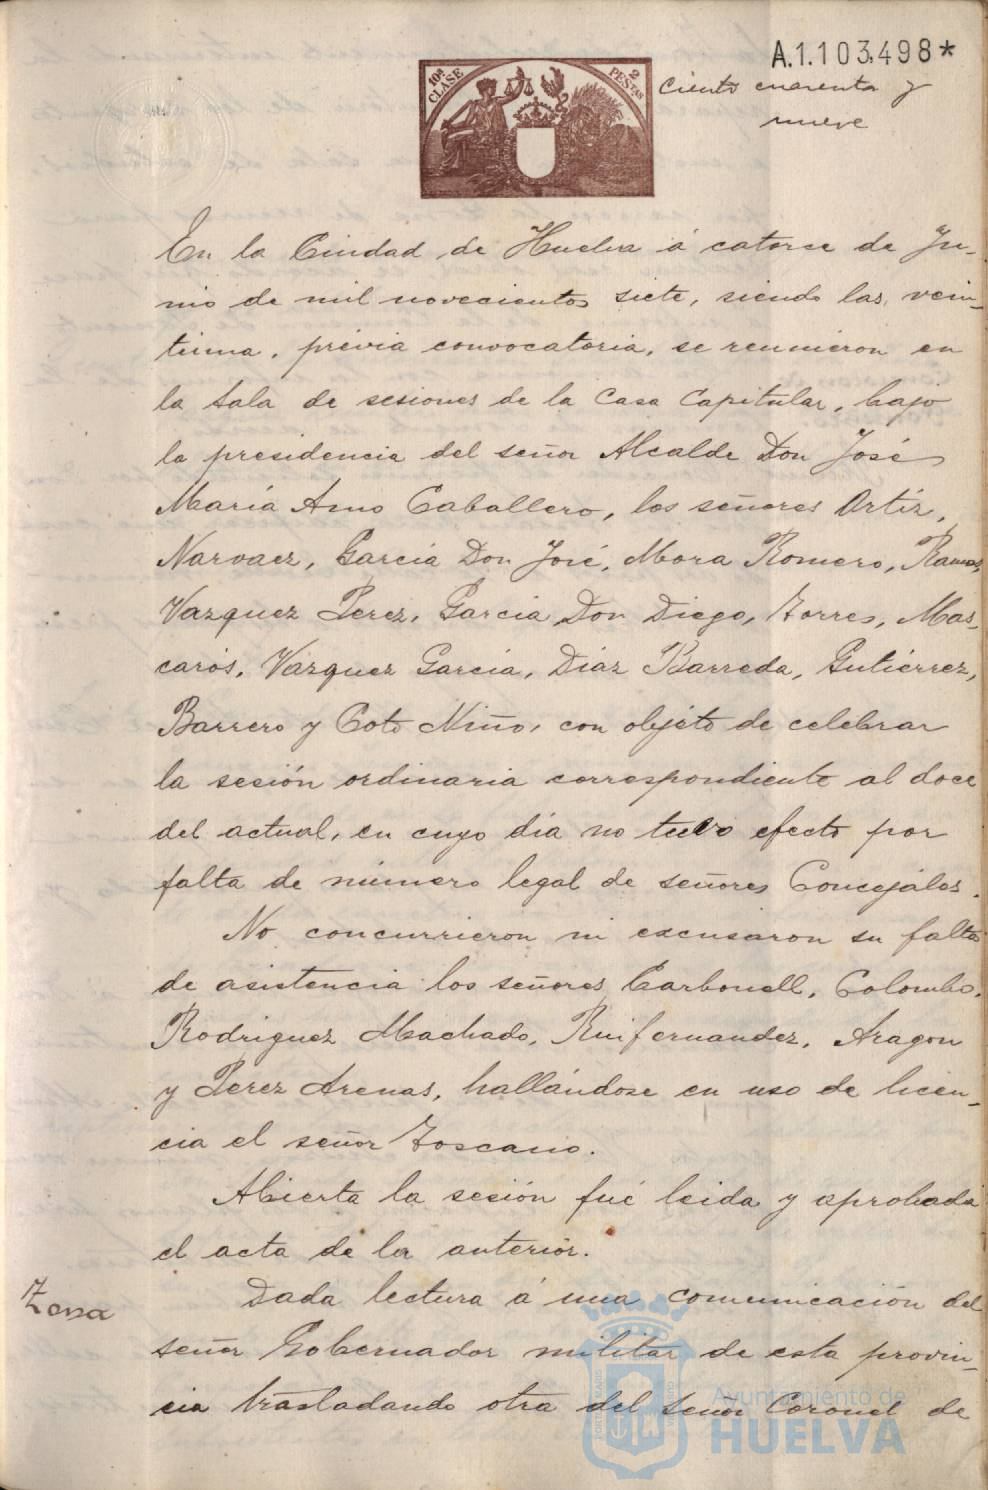 A.1.103.498*
10ª CLASE
2 PESTAS
Ciento cuarenta y
nueve
En la Ciudad de Huelva á catorce de Ju-
nio de mil novecientos siete, siendo las vein-
tiuna, prévia convocatoria, se reunieron en
la Sala de sesiones de la Casa Capitular, bajo
la presidencia del señor Alcalde Don José
María Amo Caballero, los señores Ortíz,
Narvaez, García Don José, Mora Romero, Ramos,
Vazquez Perez, García Don Diego, Torres, Mas-
carós, Vázquez García, Díaz Barreda, Gutiérrez,
Barrero y Coto Niño, con objeto de celebrar
la sesión ordinaria correspondiente al doce
del actual, en cuyo día no tuvo efecto por
falta de número legal de señores Concejáles.
No concurrieron ni escusaron su falta
de asistencia los señores Carbonell, Colombo,
Rodriguez Machado, Ruifernandez, Aragon
y Perez Arenas, hallándose en uso de licen-
cia el señor Toscano.
Abierta la sesión fué leida y aprobada
el acta de la anterior.
Zona
Dada lectura á una comunicación del
señor Gobernador militar de esta provin-
cia trasladando otra del Señor Coronel de
Ayuntamiento de
HUELVA